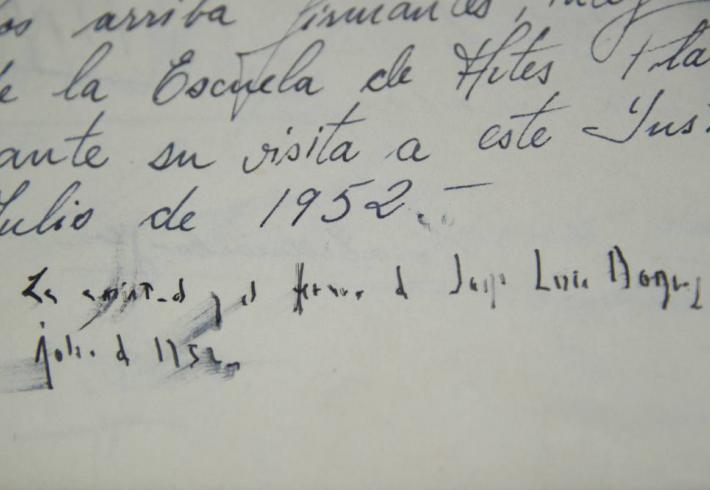 os arriba firmantes,
de la Escuela de Artes Pla
ante su visita a este Inst
Julio de 1952.-
La amistad y el fervor de Jorge Luis Borges
julio de 1952.